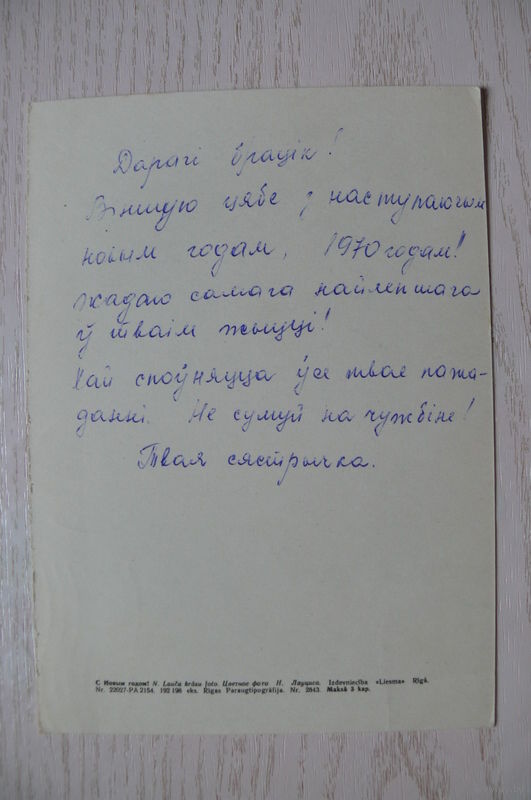 Дарагі брацік!
Віншую цябе з наступаючым
новым годам, 1970 годам!
Жадаю самага найлепшага
ў тваім жыцці!
Хай споўняцца ўсе твае пажа-
данні. Не сумуй на чужбіне!
Твая сястрычка.
С Новым годом! N. Lauča krāsu foto. Цветное фото Н. Лауциса. Izdevniecība «Liesma» Rīgā.
Nr. 22027-PA 2154. 192 196 eks. Rīgas Paraugtipogrāfija. Nr. 2843. Maksā 3 kap.